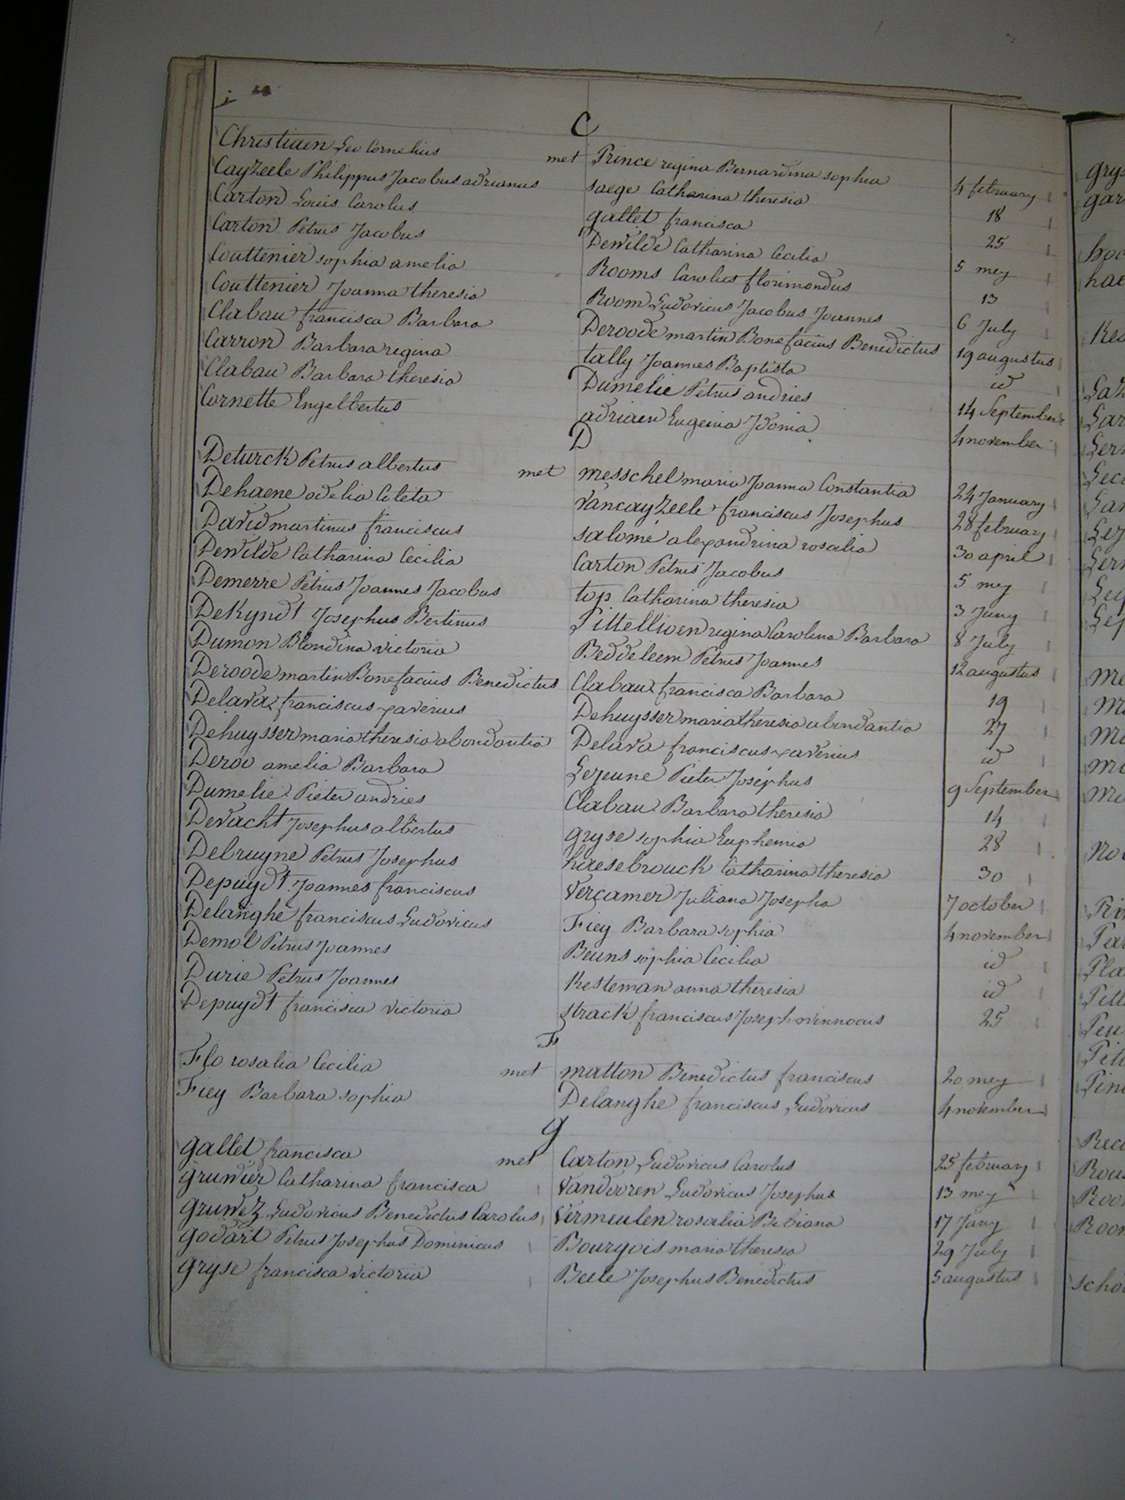 C
Christiaen Leo Cornelius met Prince regina Bernardina sophia 4 february
CayZeele Philippus Jacobus adrianus saege Catharina theresia 18
Carton Louis Carolus gallet francisca 25
Carton Petrus Jacobus Dewilde Catharina Cecilia 5 mey
Couttenier sophia amelia Rooms Carolus florimondus 13
Couttenier Joanna theresia Room Ludovicus Jacobus Joannes 6 July
Clabau francisca Barbara Deroode martin Bonefacius Benedictus 19 augustus
Carron Barbara regina tally Joannes Baptista id
Clabau Barbara theresia Dumelie Petrus andries 14 September
Cornette Engelbertus adriaen Eugenia Idonia 4 november
D
Deturck Petrus albertus met messchel maria Joanna Constantia 24 January
Dehaene adelia Coleta VancayZeele franciscus Josephus 28 february
David martinus franciscus salomé alexandrina rosalia 30 april
Dewilde Catharina Cecilia Carton Petrus Jacobus 5 mey
Demerre Petrus Joannes Jacobus top Catharina theresia 3 Juny
DeKyndt Josephus Bertinus Pittellioen regina Carolina Barbara 8 July
Dumon Blondina victoria Beddeleem Petrus Joannes 12 augustus
Deroode martin Bonefacius Benedictus Clabau francisca Barbara 19
Delava franciscus xaverius Dehuysser maria theresia abondantia 27
Dehuysser maria theresia abondantia Delava franciscus xaverius id
Deroo amelia Barbara Lejeune Pieter Joséphus 9 September
Dumelie Pieter andries Clabau Barbara theresia 14
Devacht Josephus albertus gryse sophia Euphemia 28
Debruyne Petrus Josephus haesebrouck Catharina theresia 30
Depuydt Joannes franciscus Vercamer Juliana Josepha 7 october
Delanghe franciscus Ludovicus Fiey Barbara sophia 4 november
Demol Petrus Joannes Beuns sophia Cecilia id
Durie Petrus Joannes Kesteman anna theresia id
Depuydt francisca victoria strack franciscus Joseph 25
F
Flo rosalia Cecilia met matton Benedictus franciscus 20 mey
Fiey Barbara sophia Delanghe franciscus Ludovicus 4 november
g
gallet francisca met Carton Ludovicus Carolus 25 february
gruwier Catharina francisca Vandooren Ludovicus Josephus 13 mey
gruwez Ludovicus Benedictus Carolus Vermeulen rosalia Bibiana 17 Juny
godart Petrus Josephus Dominicus Bourgois maria theresia 29 July
gryse francisca victoria Beele Josephus Benedictus 5 augustus